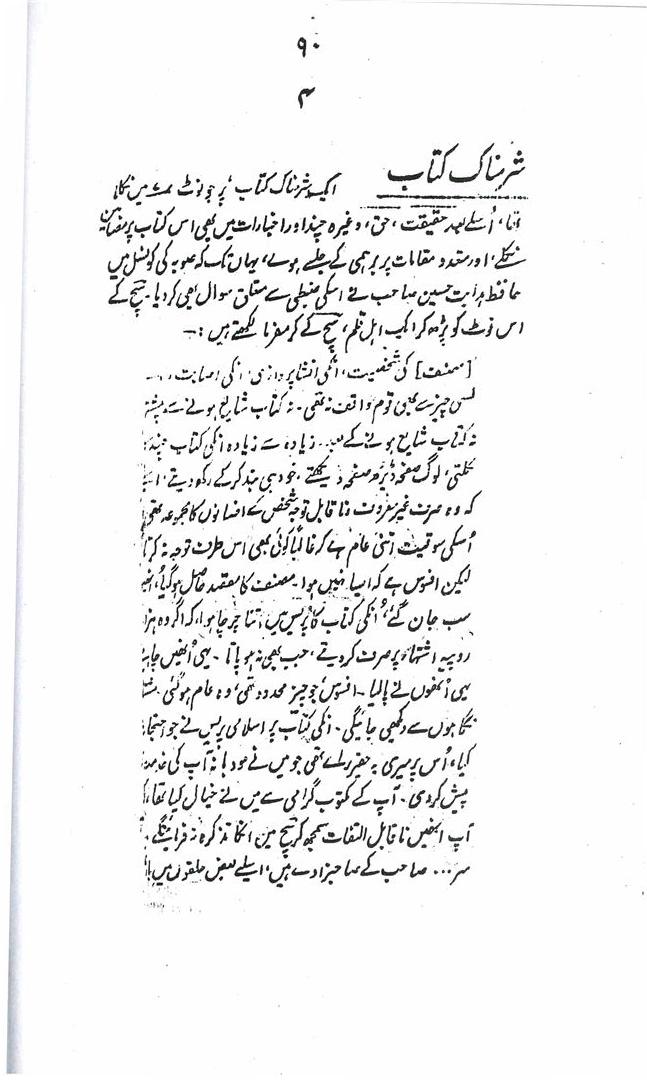 ۹۰
۴
شرمناک کتاب
ایک شرمناک کتاب پر جو نوٹ میں نکلا
تھا، اُسکے بعد حقیقت، حق، وغیرہ چند اور اخبارات میں بھی اس کتاب پر مضامین
نکلے، اور متعدد مقامات پر برہمی کے جلسے ہوے، یہاں تک کہ صوبہ کی کونسل میں
حافظ ہدایت حسین صاحب نے اسکی ضبطی سے متعلق سوال بھی کردیا۔ سچ کے
اس نوٹ کو پڑھ کر ایک اہل قلم، سچ کے کرمفرما لکھتے ہیں :۔
[مصنف] کی شخصیت، انکی انشا پردازی، انکی اصابت ...
کسی چیز سے بھی قوم واقف نہ تھی۔ نہ کتاب شایع ہونے سے پیشتر
نہ کتاب شایع ہونے کے بعد۔ زیادہ سے زیادہ انکی کتاب چند
نکلتی، لوگ صفحہ ڈیڑھ صفحہ دیکھتے، خود ہی بند کرکے رکھ دیتے،
کہ وہ صرف غیر معروف و ناقابل توجہ شخص کے افسانوں کا مجموعہ تھی
اُسکی سوقیت اتنی عام ہے کہ غالباً کوئی بھی اس طرف توجہ نہ کرتا
لیکن افسوس ہے کہ ایسا نہیں ہوا۔ مصنف کا مقصد حاصل ہوگیا، انھیں
سب جان گئے، اُنکی کتاب کا پریس میں اتنا چرچا ہوا، کہ اگر وہ ہزار
روپیہ اشتہار پر صرف کردیتے، جب بھی نہ ہو پاتا۔ یہی اُنھیں چاہئے
یہی اُنھوں نے پالیا۔ افسوس، جو چیز محدود تھی، وہ عام ہوگئی۔
نگاہوں سے دیکھی جائیگی۔ انکی کتاب پر اسلامی پریس نے جو احتجاج
کیا، اُس پر میری یہ حقیر راے تھی جو میں نے مودبانہ آپ کی خدمت
پیش کردی۔ آپ کے مکتوب گرامی سے میں نے خیال کیا تھا، کہ
آپ انھیں ناقابل التفات سمجھ کر سچ میں انکا تذکرہ نہ فرمائینگے۔
سر... صاحب کے صاحبزادے ہیں، اسلئے بعض حلقوں میں